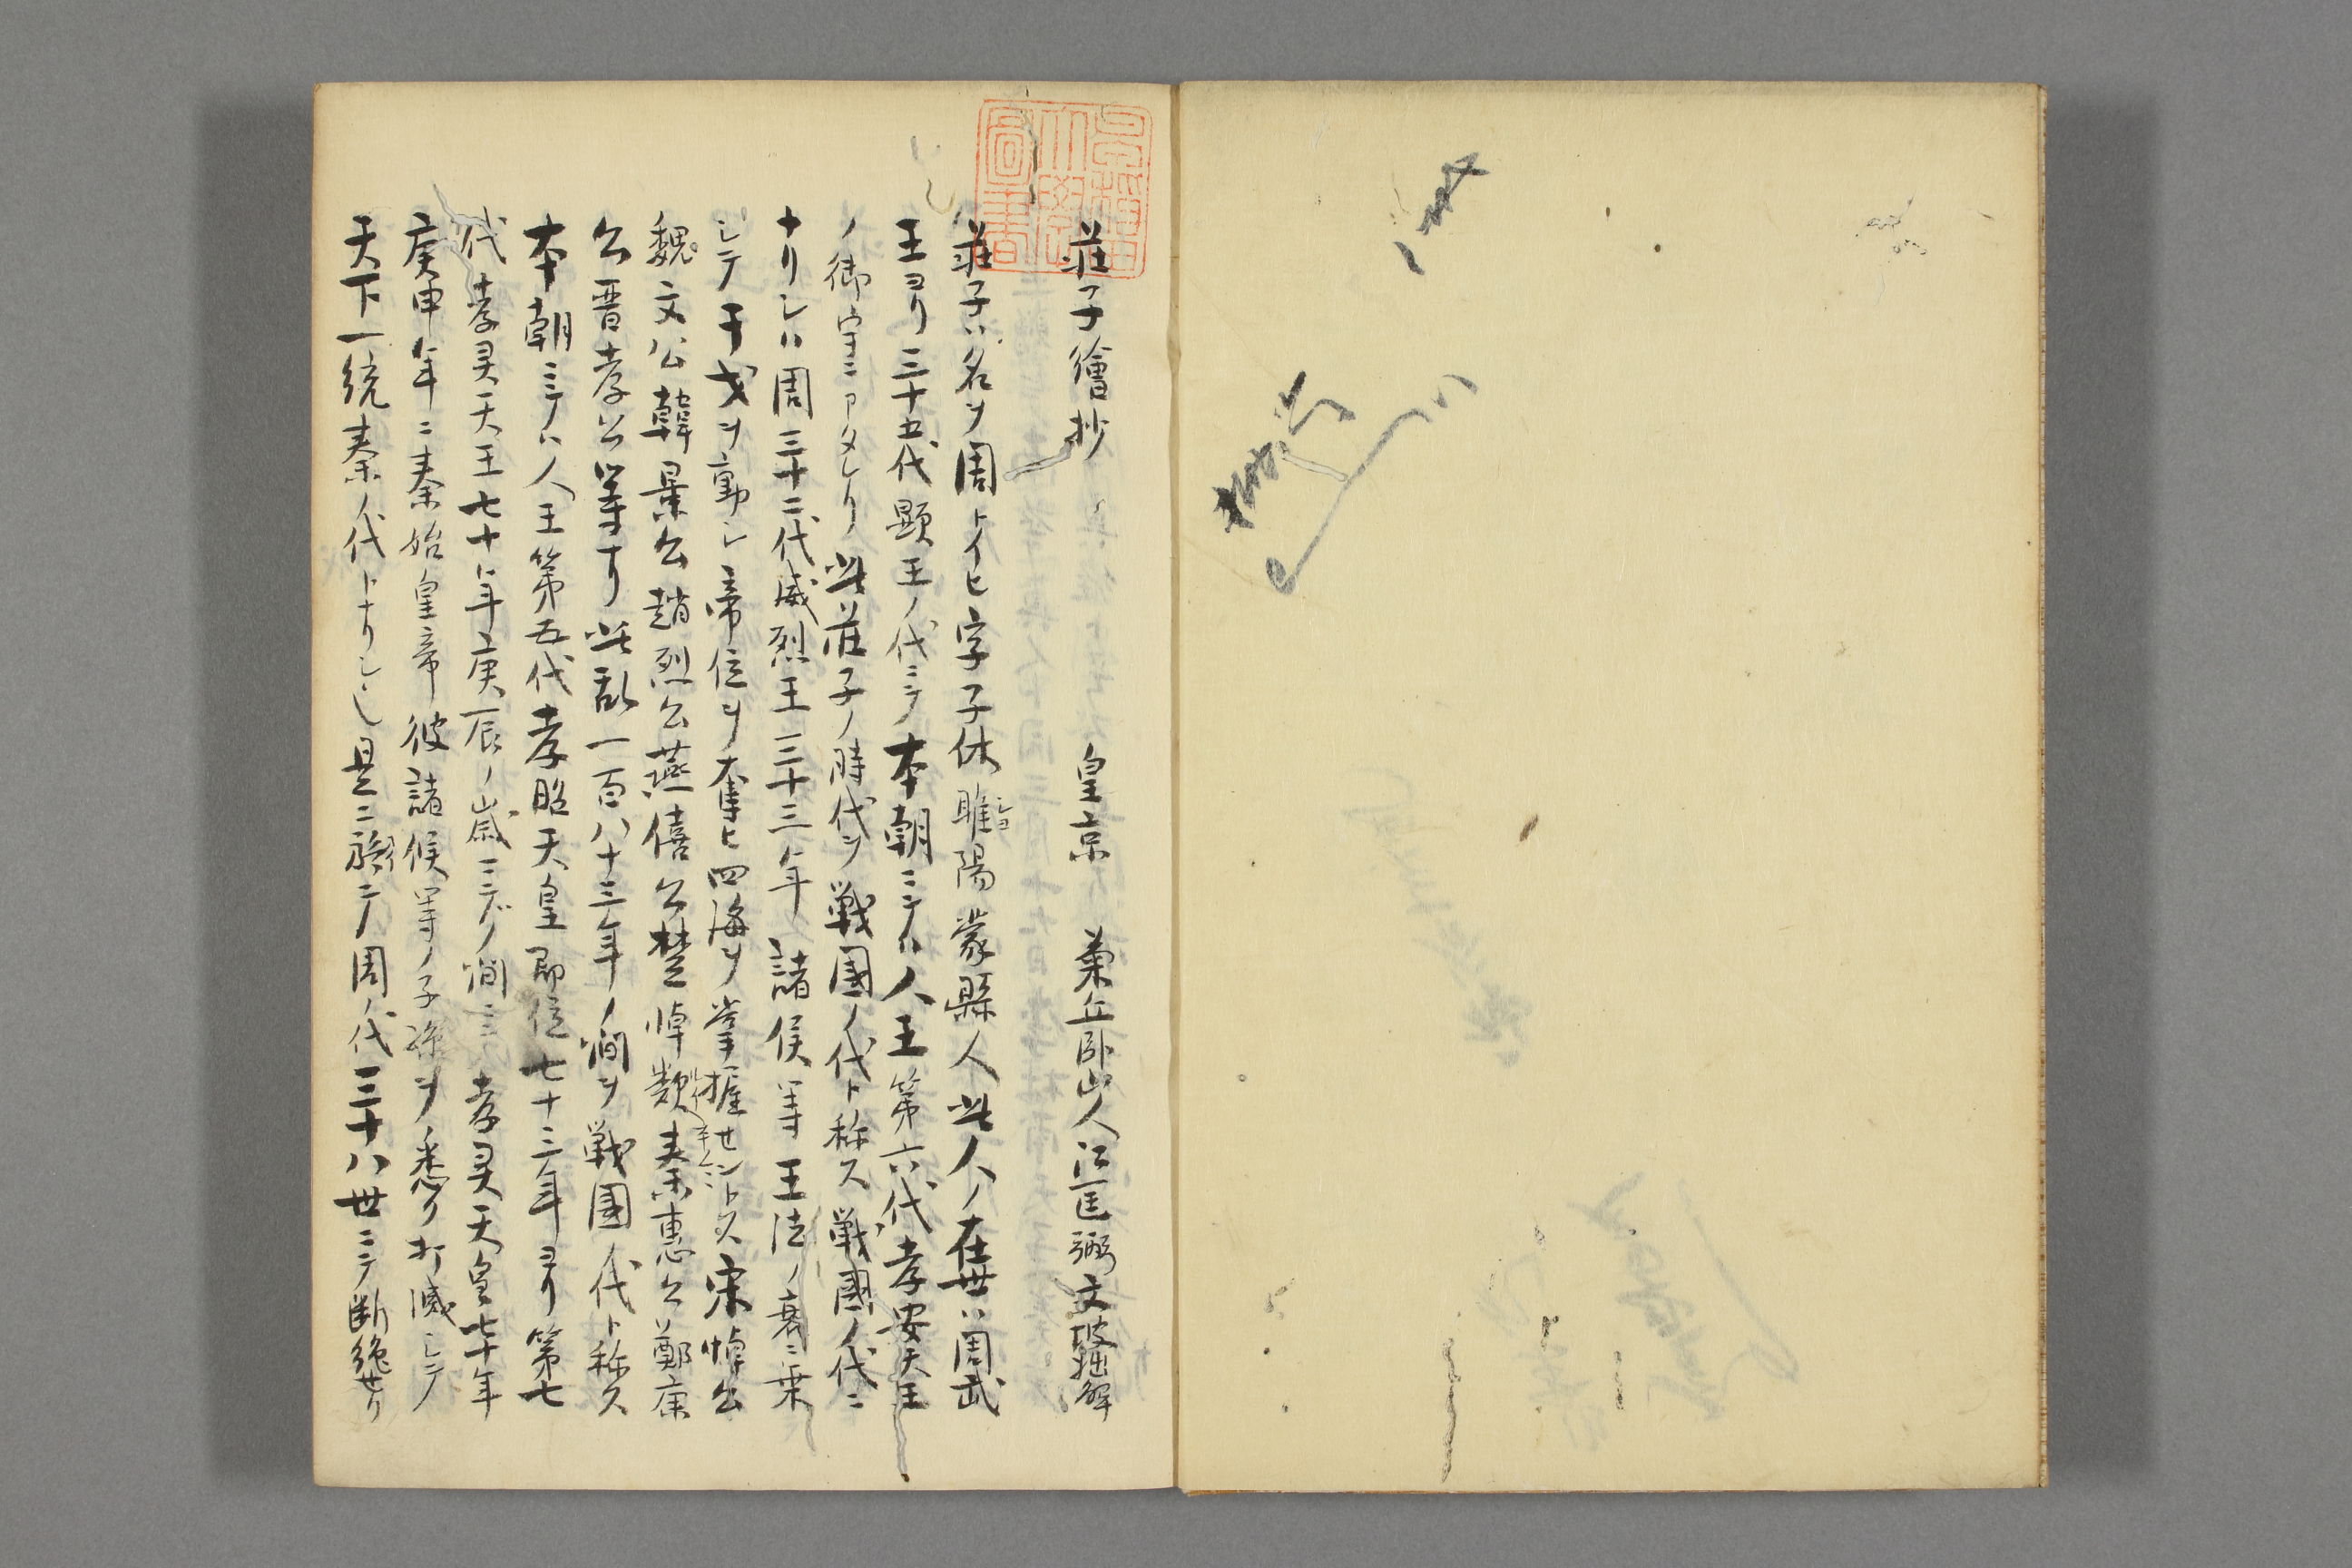 莊子繪抄　皇京　菊丘臥山人江匡弼文坡拙解
莊子ハ名ヲ周トイヒ字子休睢陽蒙縣人此人ノ在世ハ周武
王ヨリ三十五代顕王ノ代ニテ本朝ニテハ人王第六代孝安天王
ノ御宇ニアタレリ此莊子ノ時代ヲ戦國ノ代ト称ス戦國ノ代ニ
ナリシハ周三十二代威烈王二十三年諸侯等王法ノ衰ニ乗
シテ干戈ヲ動シ帝位ヲ奪ヒ四海ヲ掌握セントス宋悼公
魏文公韓景公趙烈公燕僖公楚悼類秦惠公鄭康
公晋孝公等ナリ此乱一百八十三年ノ間ヲ戦國ノ代ト称ス
本朝ニテハ人王第五代孝昭天皇即位七十三年ヨリ第七
代孝灵天王七十年庚辰ノ歳ニテノ間ニ孝灵天皇七十年
庚申年ニ秦始皇帝彼諸侯等ノ子孫ヲ悉ク打滅シテ
天下一統秦ノ代トナリシ是ニ於テ周ノ代三十八世ニテ断絶セリ